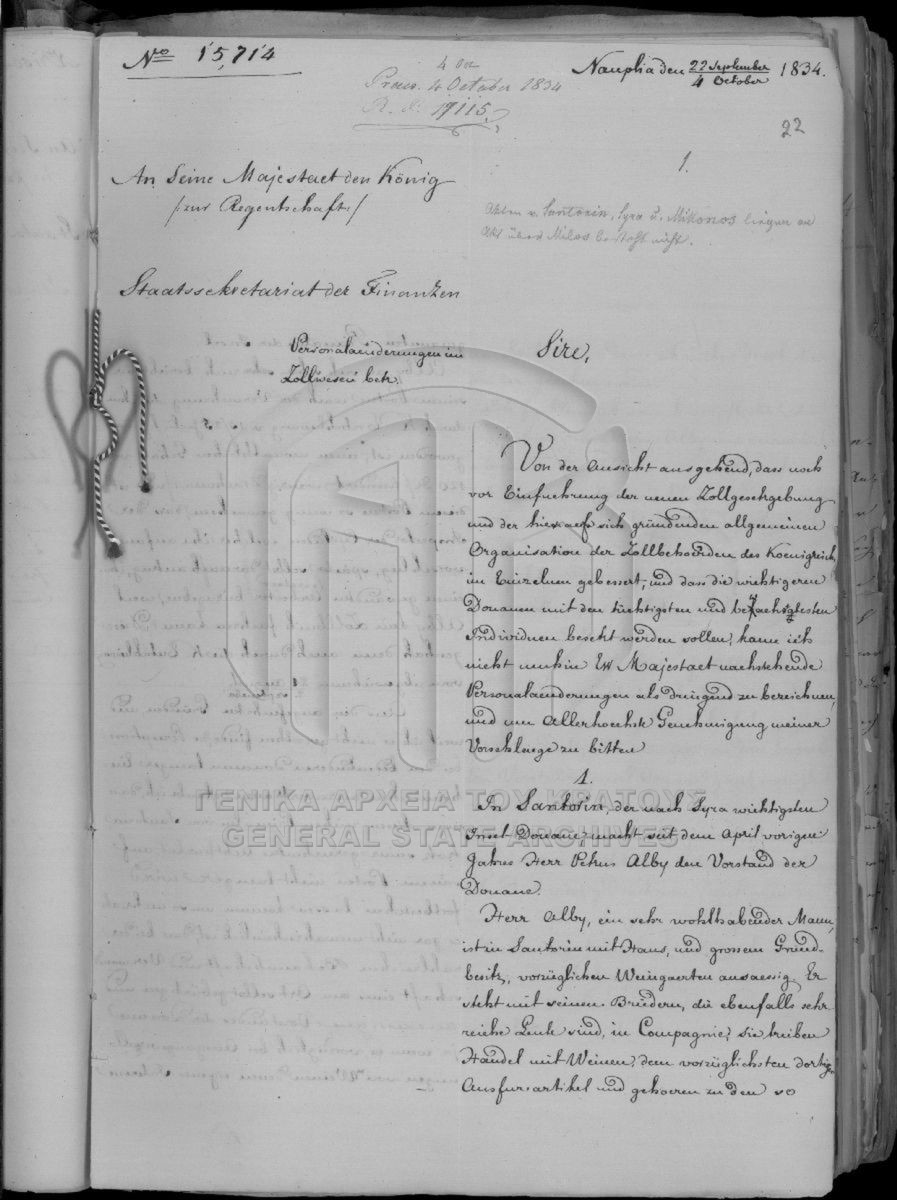 No 15,714
Nauplia den 22 September / 4 October 1834.
Praes. 4 October 1834
R. d. 17115
22
1.
An Seine Majestaet den König
/: zur Regentschaft :/
Akten v. Santorin, Syra u. Mikonos liegen an
Akt über Milos besteht nicht.
Staatssekretariat der Finanzen
Personalaenderungen im
Zollwesen betr.
Sire,
Von der Ansicht ausgehend, dass noch
vor Einfuehrung der neuen Zollgesetzgebung
und der hierauf sich gründenden allgemeinen
Organisation der Zollbehoerden des Koenigreichs
im Einzelnen gebessert, und dass die wichtigern
Douanen mit den tüchtigsten und
Individuen besetzt werden sollen, kann ich
nicht umhin Ew Majestaet nachstehende
Personalaenderungen als dringend zu bezeichnen,
und um Allerhoechste Genehmigung meiner
Vorschlaege zu bitten
1.
In Santorin, der nach Syra wichtigsten
Insel Douane, macht seit dem April vorigen
Jahres Herr Petrus Alby den Vorstand der
Douane.
Herr Alby, ein sehr wohlhabender Mann,
ist in Santorin mit Haus, und grossem Grund-
besitz, vorzüglichen Weingaerten ansaessig. Er
steht mit seinen Brüdern, die ebenfalls sehr
reiche Leute sind, in Compagnie, sie trieben
Handel mit Weinen, dem vorzüglichsten dortigen
Ausfurartikel und gehoeren zu den so
ΓΕΝΙΚΑ ΑΡΧΕΙΑ ΤΟΥ ΚΡΑΤΟΥΣ
GENERAL STATE ARCHIVES